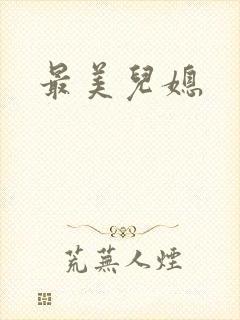 最美兒媳
荒蕪人煙